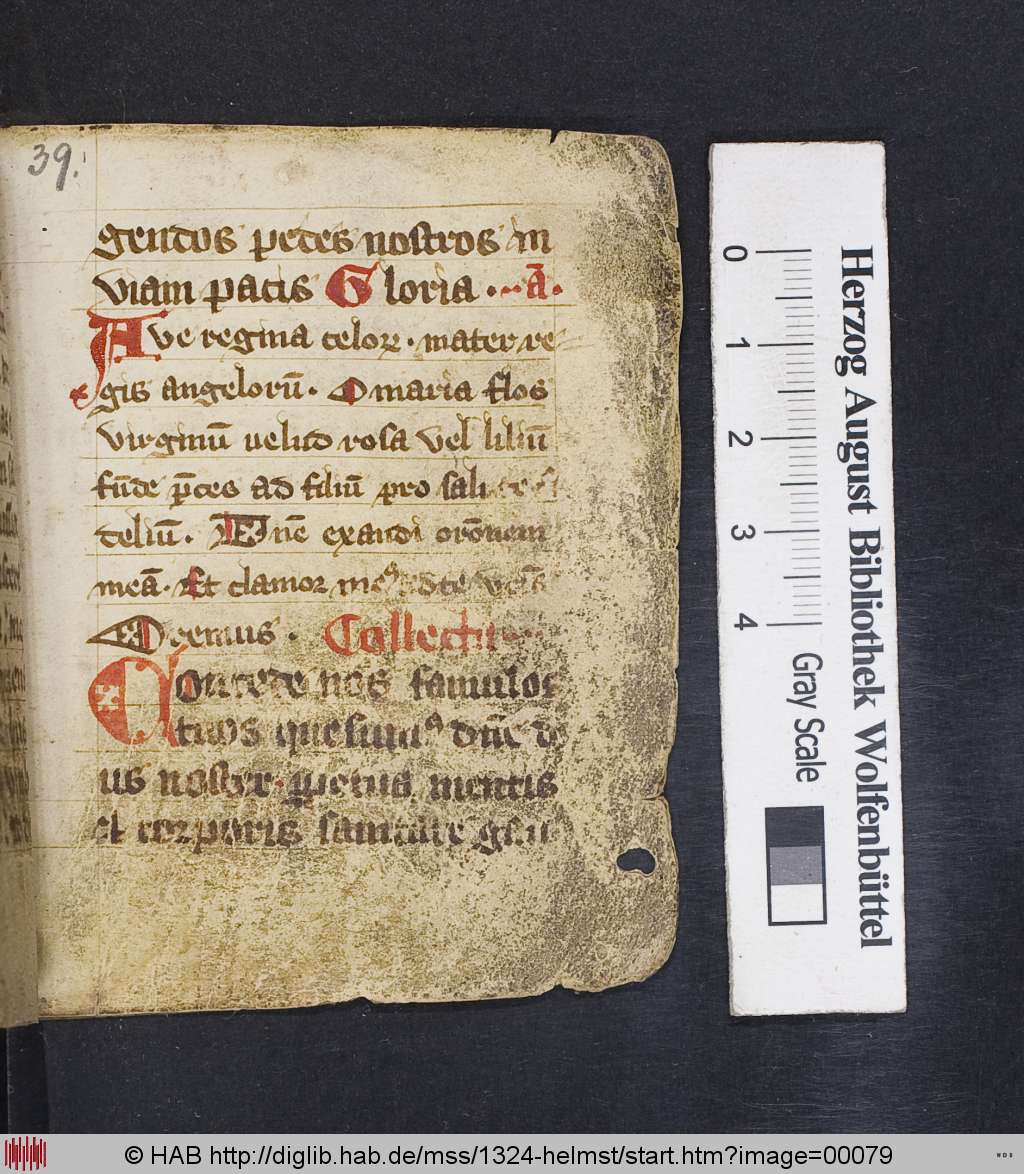 39.
gendos pedes nostros in
viam pacis Gloria · · · a̅ ·
Ave regina celoꝝ · mater re
gis angeloru̅ · O maria flos
virginu̅ uelud rosa vel liliu̅
fu̅de p̅ces ad filiu̅ pro salute fi
deliu̅ · D n̅e exaudi oro̅nem
mea̅ · Et clamor meꝰ ad te ve̅
Oremus · Collecta
Concede nos famulos
tuos quesumꝰ dn̅e de
us noster · ꝑpetua mentis
et corporis sanitate
Herzog August Bibliothek Wolfenbüttel
0
1
2
3
4
Gray Scale
© HAB http://diglib.hab.de/mss/1324-helmst/start.htm?image=00079